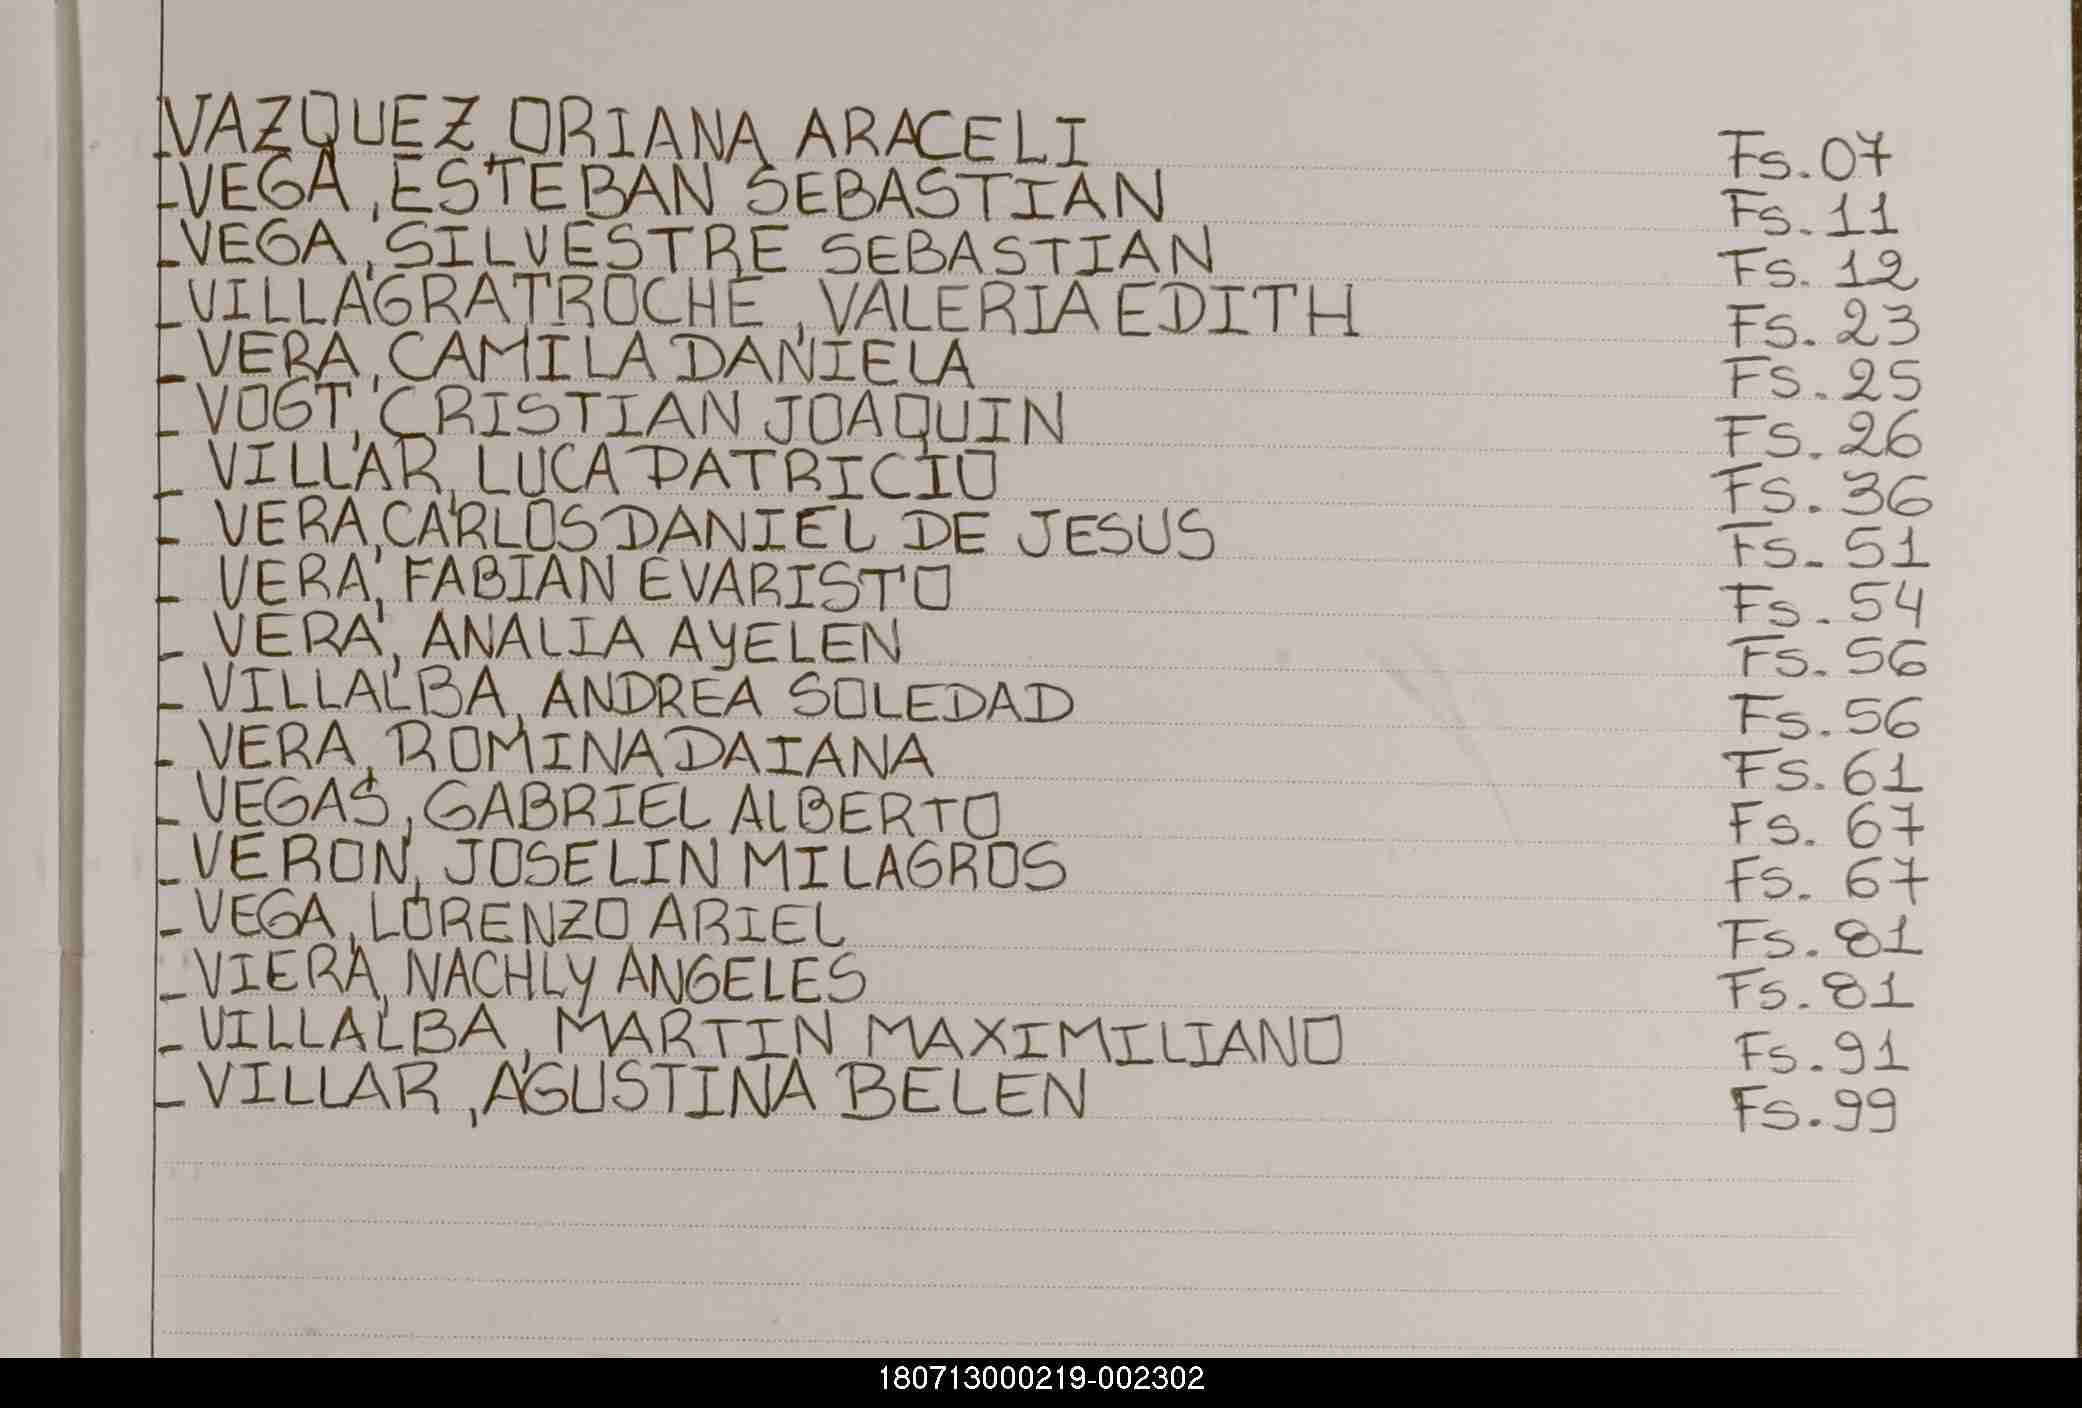 -VAZQUEZ, ORIANA ARACELI Fs. 07
-VEGA, ESTEBAN SEBASTIAN Fs. 11
-VEGA, SILVESTRE SEBASTIAN Fs. 12
-VILLAGRATROCHE, VALERIA EDITH Fs. 23
- VERA, CAMILA DANIELA Fs. 25
- VOGT, CRISTIAN JOAQUIN Fs. 26
- VILLAR, LUCA PATRICIO Fs. 36
- VERA, CARLOS DANIEL DE JESUS Fs. 51
- VERA, FABIAN EVARISTO Fs. 54
- VERA, ANALIA AYELEN Fs. 56
- VILLALBA, ANDREA SOLEDAD Fs. 56
- VERA, ROMINA DAIANA Fs. 61
- VEGAS, GABRIEL ALBERTO Fs. 67
- VERON, JOSELIN MILAGROS Fs. 67
- VEGA, LORENZO ARIEL Fs. 81
- VIERA, NACHLY ANGELES Fs. 81
- VILLALBA, MARTIN MAXIMILIANO Fs. 91
- VILLAR, AGUSTINA BELEN Fs. 99
180713000219-002302